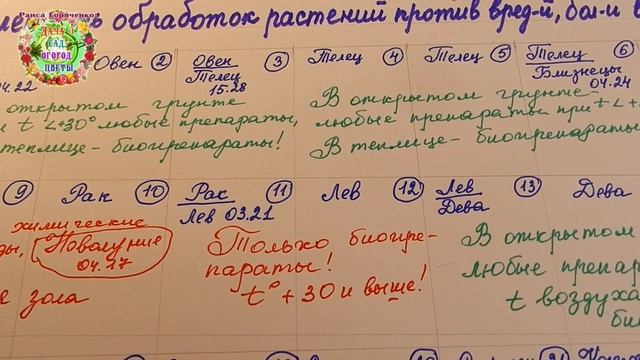 Раиса Горяченко
ДАЧА
САД
ОГОРОД
ЦВЕТЫ
обработок растений против вред-й, бол-й
Овен 2
Овен 3
Телец
15.28
Телец 4
Телец 5
Телец 6
Близнецы
04.24
04.22
открытом грунте
t <+30° любые препараты,
теплице - биопрепараты!
В открытом грунте -
любые препараты при t < +
В теплице - биопрепараты
9 Рак 10
Рак 11
Лев 03.21
Лев 12
Лев 13
Дева
Дева
химические
Новолуние
04.17
зола
Только биопре-
параты!
t° +30 и выше!
В открытом
любые препар
t воздуха
би